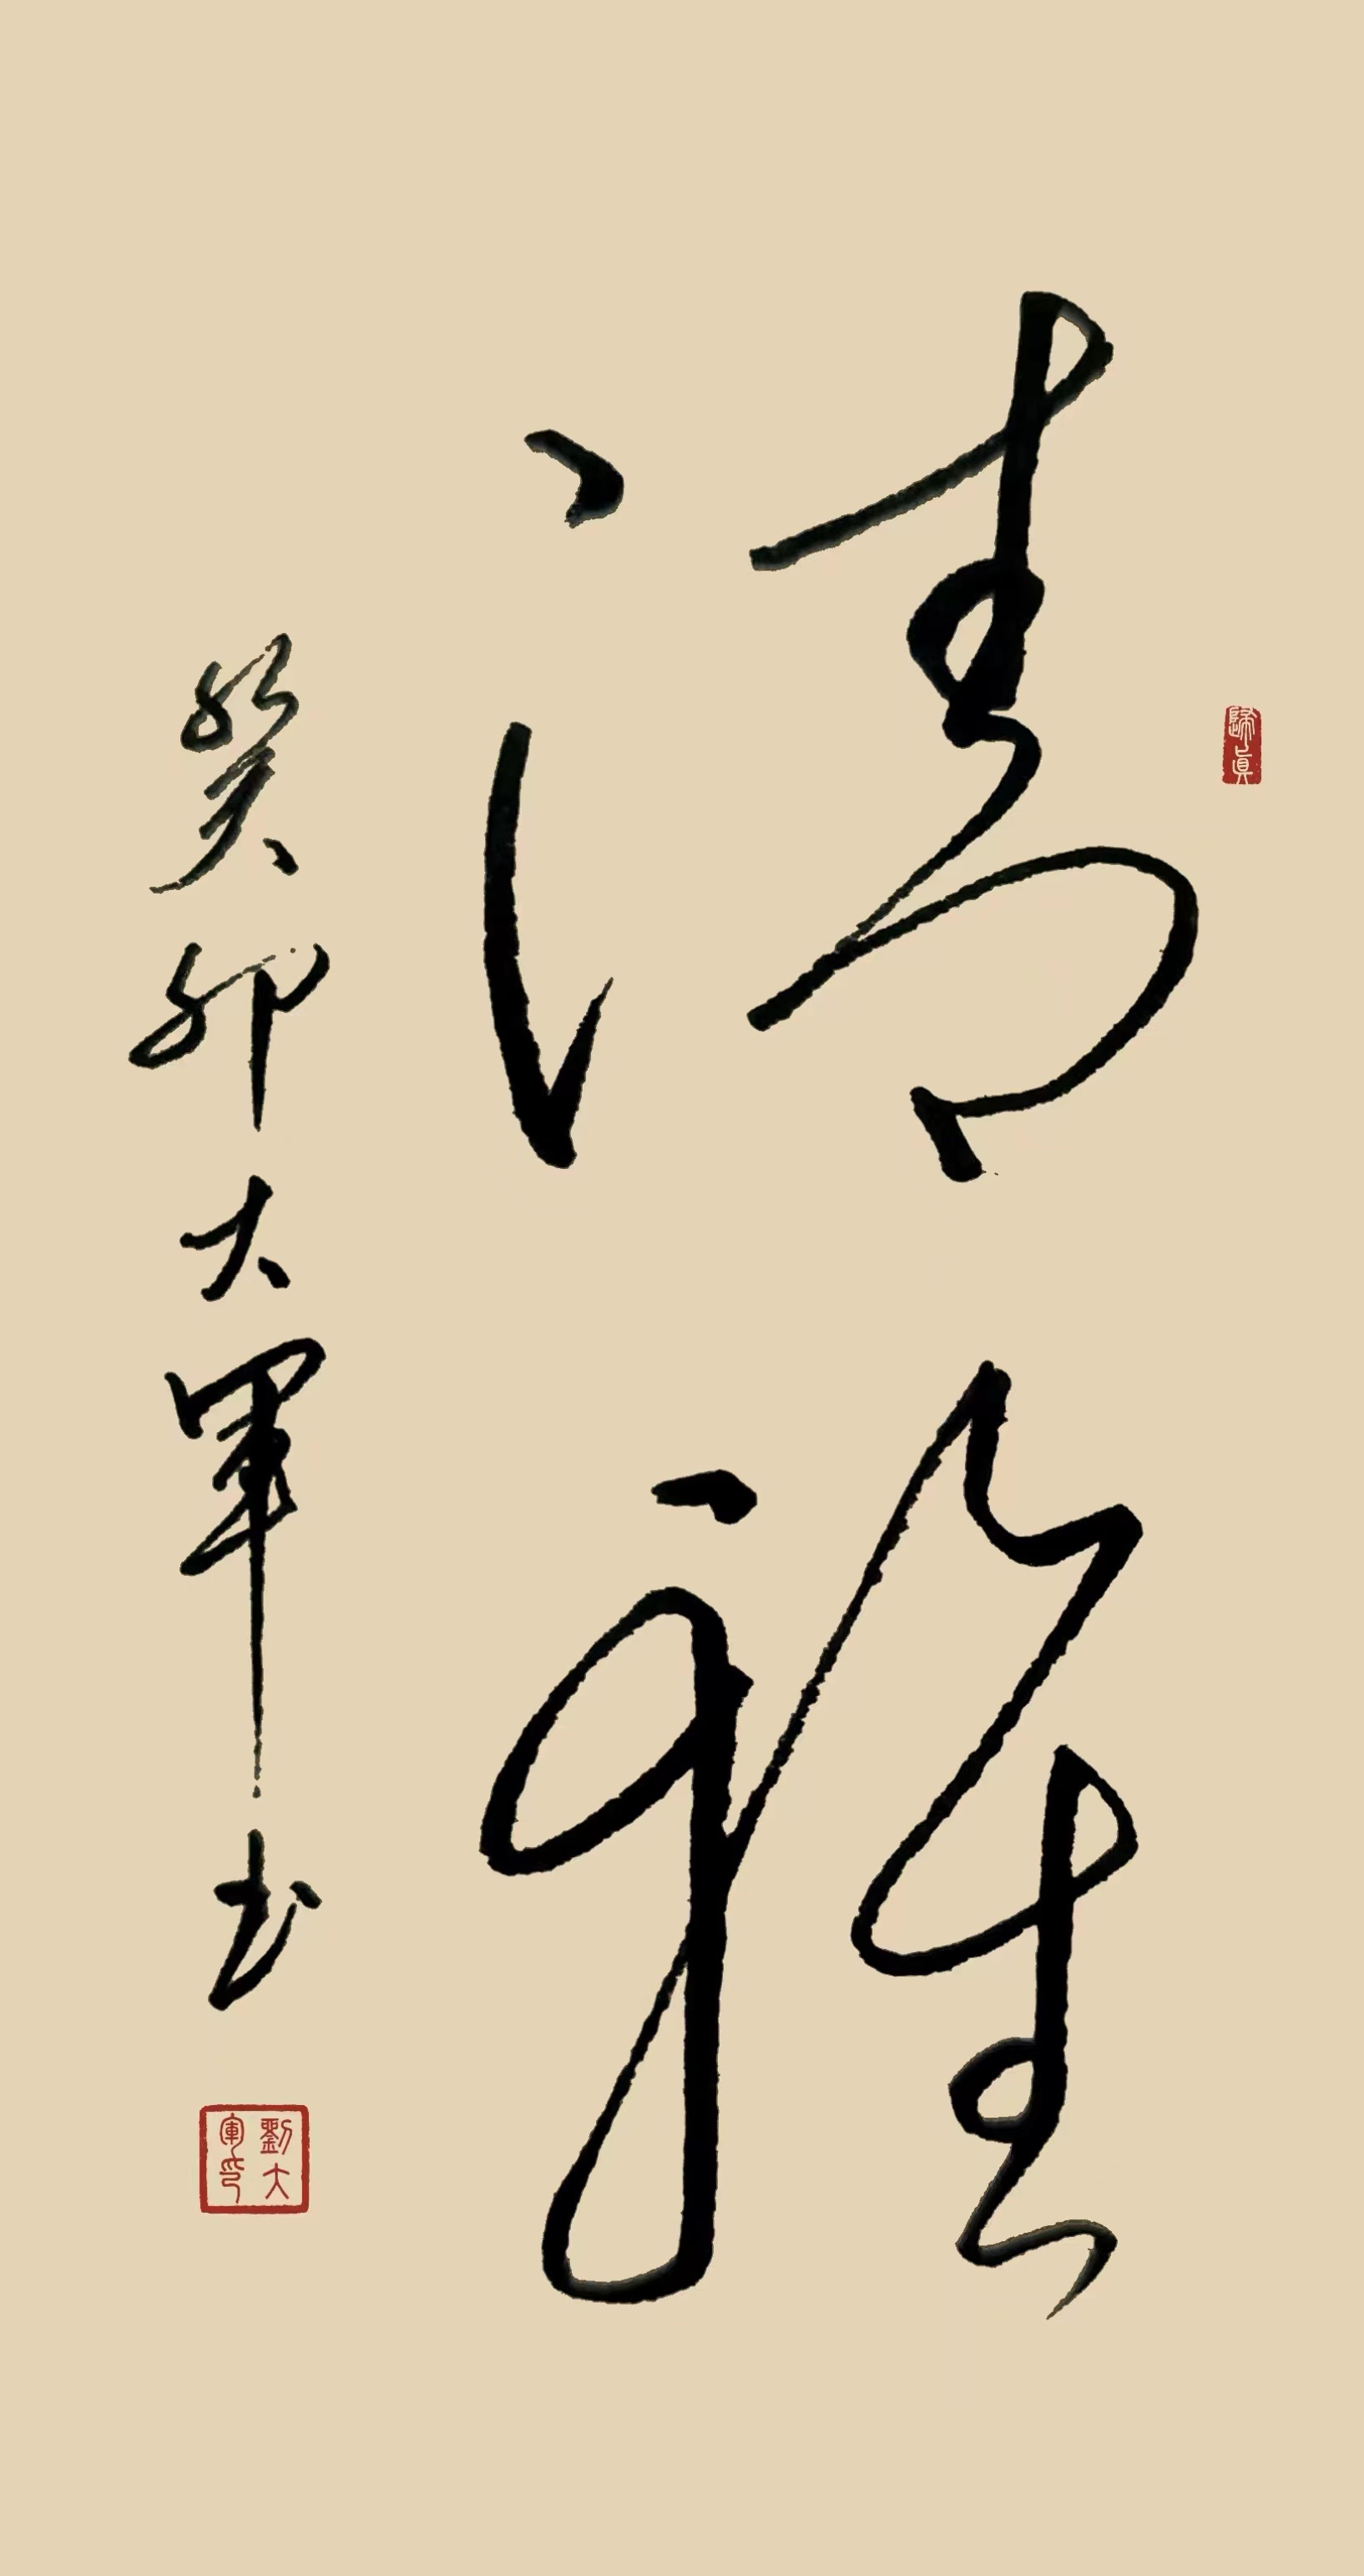 清雅
癸卯大军书
歸真
劉大軍印